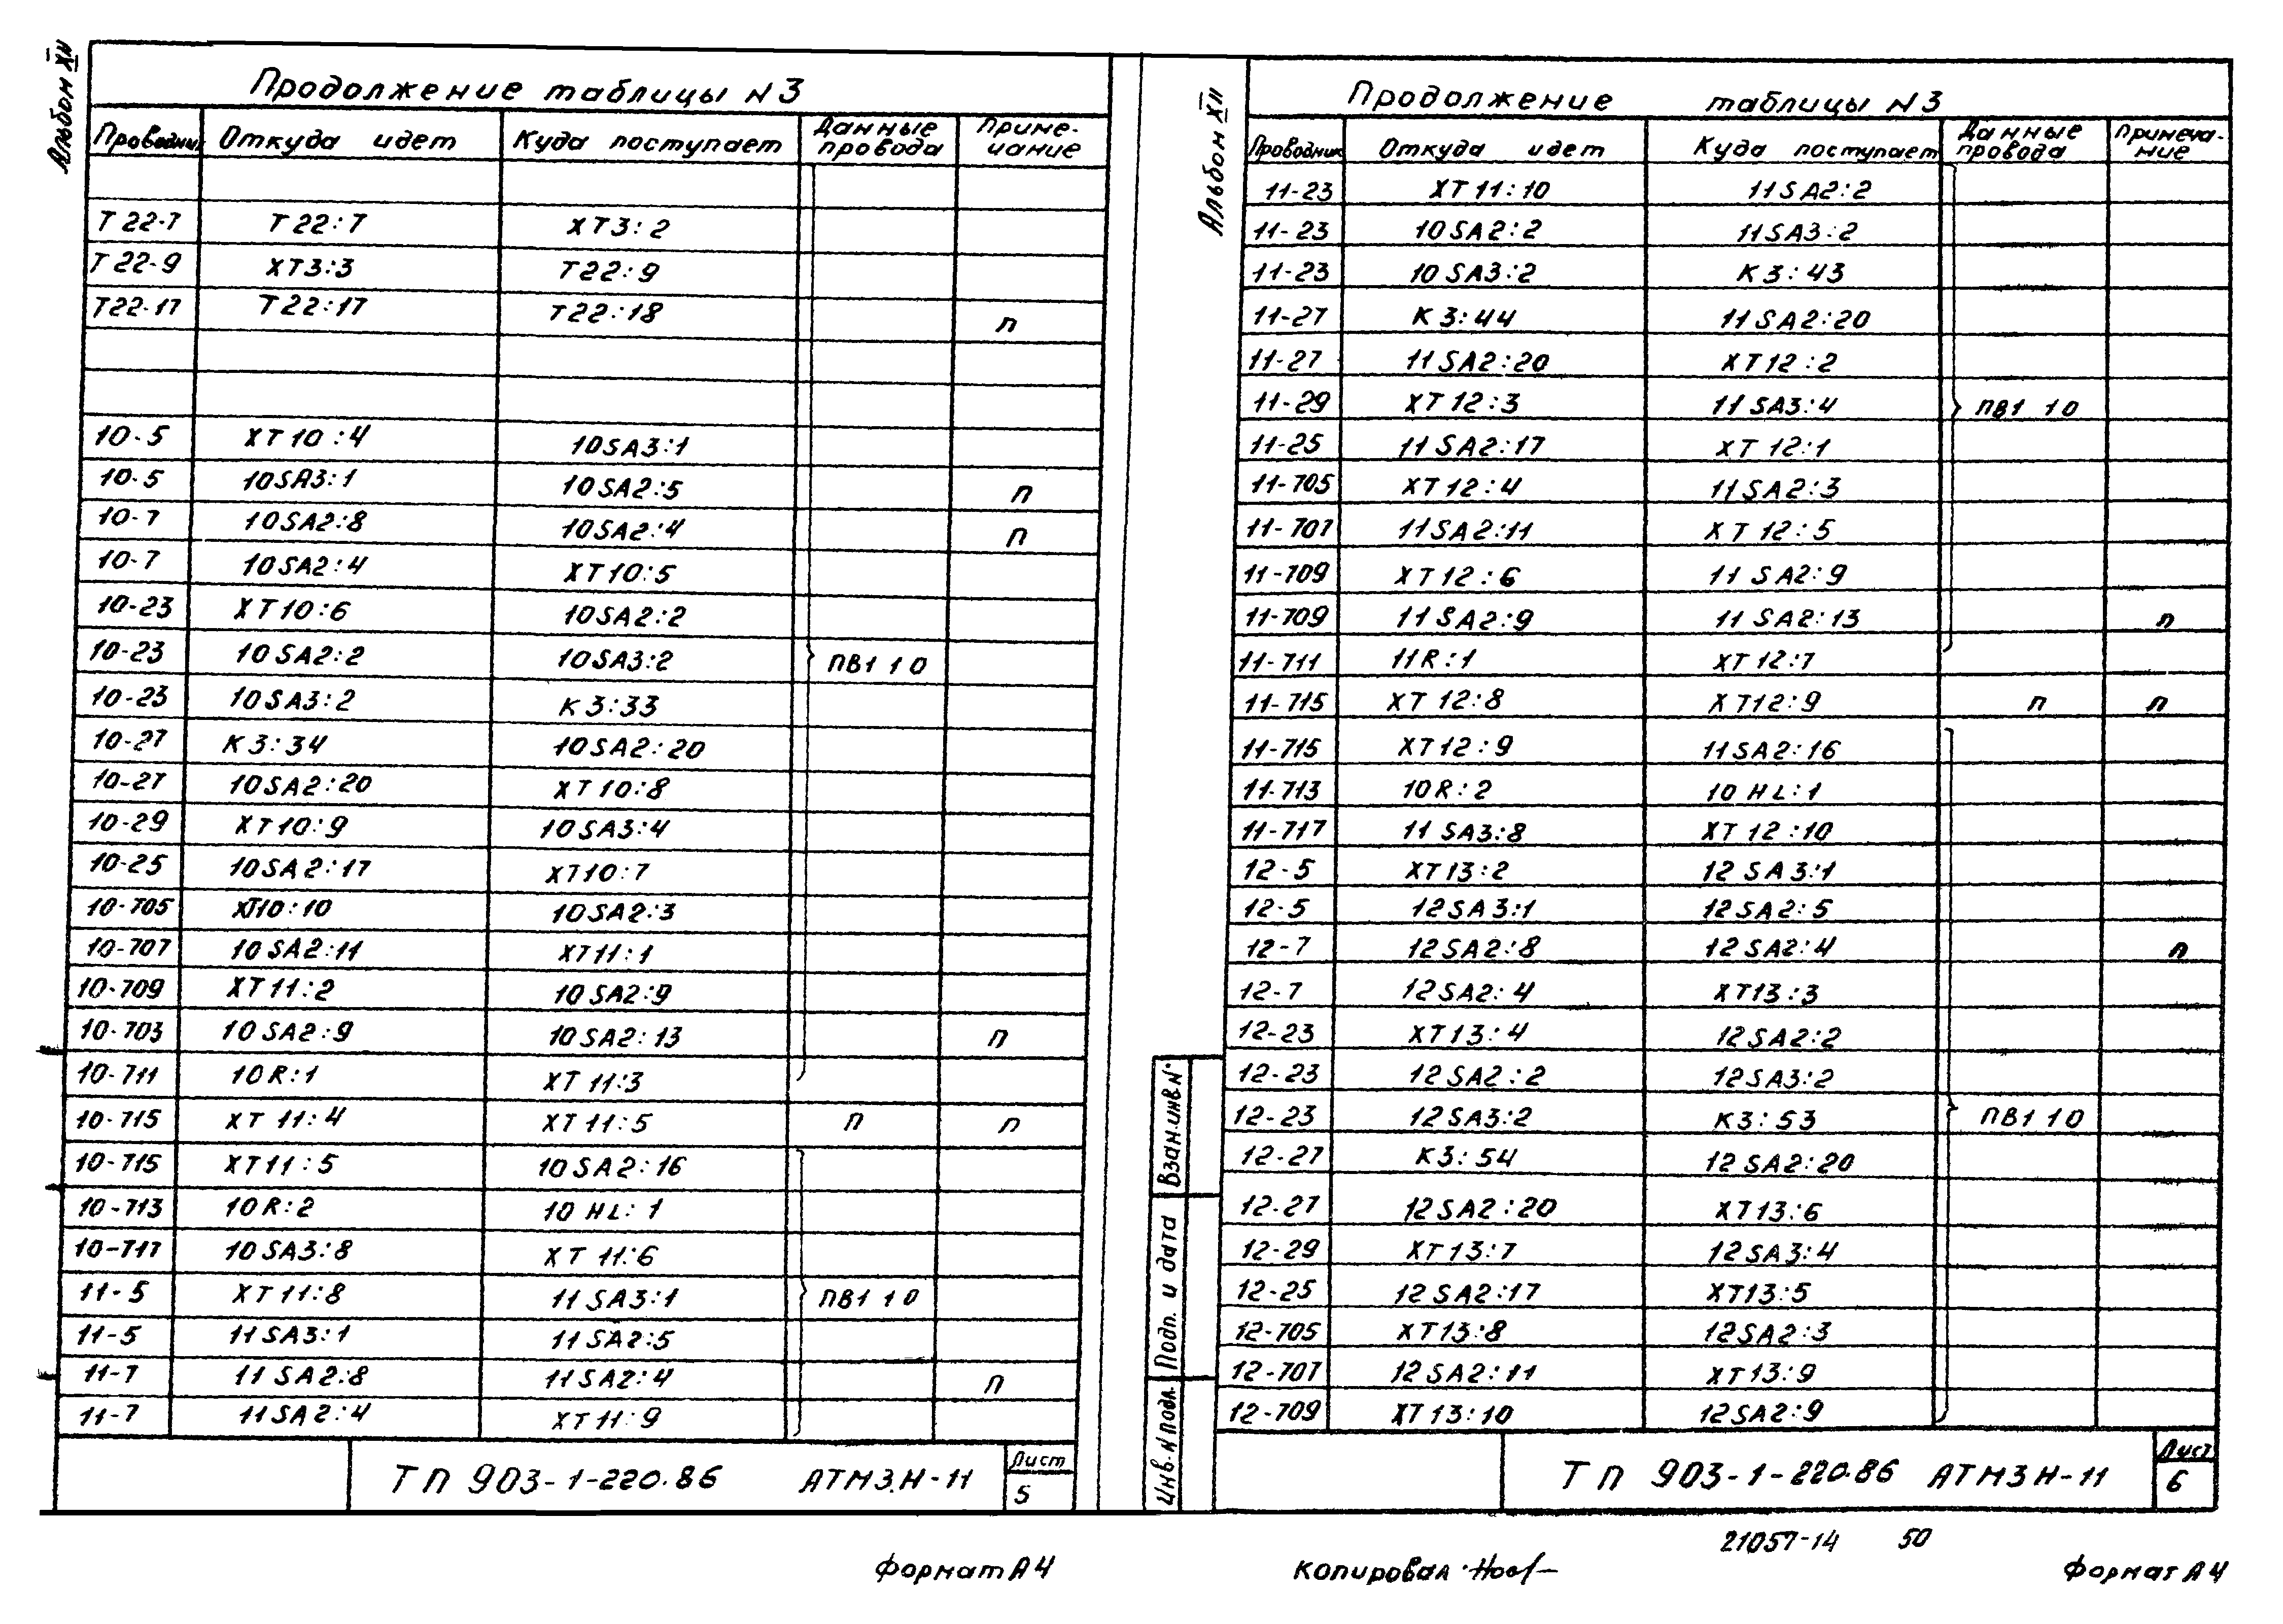 Альбом XII
Продолжение таблицы N3
Проводник Откуда идет Куда поступает Данные провода Примечание
Т22-7 Т22:7 ХТ3:2
Т22-9 ХТ3:3 Т22:9
Т22-17 Т22:17 Т22:18 п
10-5 ХТ10:4 10SA3:1
10-5 10SA3:1 10SA2:5 п
10-7 10SA2:8 10SA2:4 п
10-7 10SA2:4 ХТ10:5
10-23 ХТ10:6 10SA2:2
10-23 10SA2:2 10SA3:2 ПВ1 10
10-23 10SA3:2 К3:33
10-27 К3:34 10SA2:20
10-27 10SA2:20 ХТ10:8
10-29 ХТ10:9 10SA3:4
10-25 10SA2:17 ХТ10:7
10-705 ХТ10:10 10SA2:3
10-707 10SA2:11 ХТ11:1
10-709 ХТ11:2 10SA2:9
10-703 10SA2:9 10SA2:13 п
10-711 10R:1 ХТ11:3
10-715 ХТ11:4 ХТ11:5 п п
10-715 ХТ11:5 10SA2:16
10-713 10R:2 10HL:1
10-717 10SA3:8 ХТ11:6
11-5 ХТ11:8 11SA3:1 ПВ1 10
11-5 11SA3:1 11SA2:5
11-7 11SA2:8 11SA2:4 п
11-7 11SA2:4 ХТ11:9
ТП 903-1-220.86 АТМ3.Н-11
Лист
5
Формат А4
Альбом XII
Продолжение таблицы N3
Проводник Откуда идет Куда поступает Данные провода Примечание
11-23 ХТ11:10 11SA2:2
11-23 10SA2:2 11SA3:2
11-23 10SA3:2 К3:43
11-27 К3:44 11SA2:20
11-27 11SA2:20 ХТ12:2
11-29 ХТ12:3 11SA3:4 ПВ1 10
11-25 11SA2:17 ХТ12:1
11-705 ХТ12:4 11SA2:3
11-707 11SA2:11 ХТ12:5
11-709 ХТ12:6 11SA2:9
11-709 11SA2:9 11SA2:13 п
11-711 11R:1 ХТ12:7
11-715 ХТ12:8 ХТ12:9 п п
11-715 ХТ12:9 11SA2:16
11-713 10R:2 10HL:1
11-717 11SA3:8 ХТ12:10
12-5 ХТ13:2 12SA3:1
12-5 12SA3:1 12SA2:5
12-7 12SA2:8 12SA2:4 п
12-7 12SA2:4 ХТ13:3
12-23 ХТ13:4 12SA2:2
12-23 12SA2:2 12SA3:2
12-23 12SA3:2 К3:53 ПВ1 10
12-27 К3:54 12SA2:20
12-27 12SA2:20 ХТ13:6
12-29 ХТ13:7 12SA3:4
12-25 12SA2:17 ХТ13:5
12-705 ХТ13:8 12SA2:3
12-707 12SA2:11 ХТ13:9
12-709 ХТ13:10 12SA2:9
Взам.инв.N°
Подп. и дата
Инв.N подл.
ТП 903-1-220.86 АТМ3Н-11
Лист
6
21057-14 50
Копировал
Формат А4